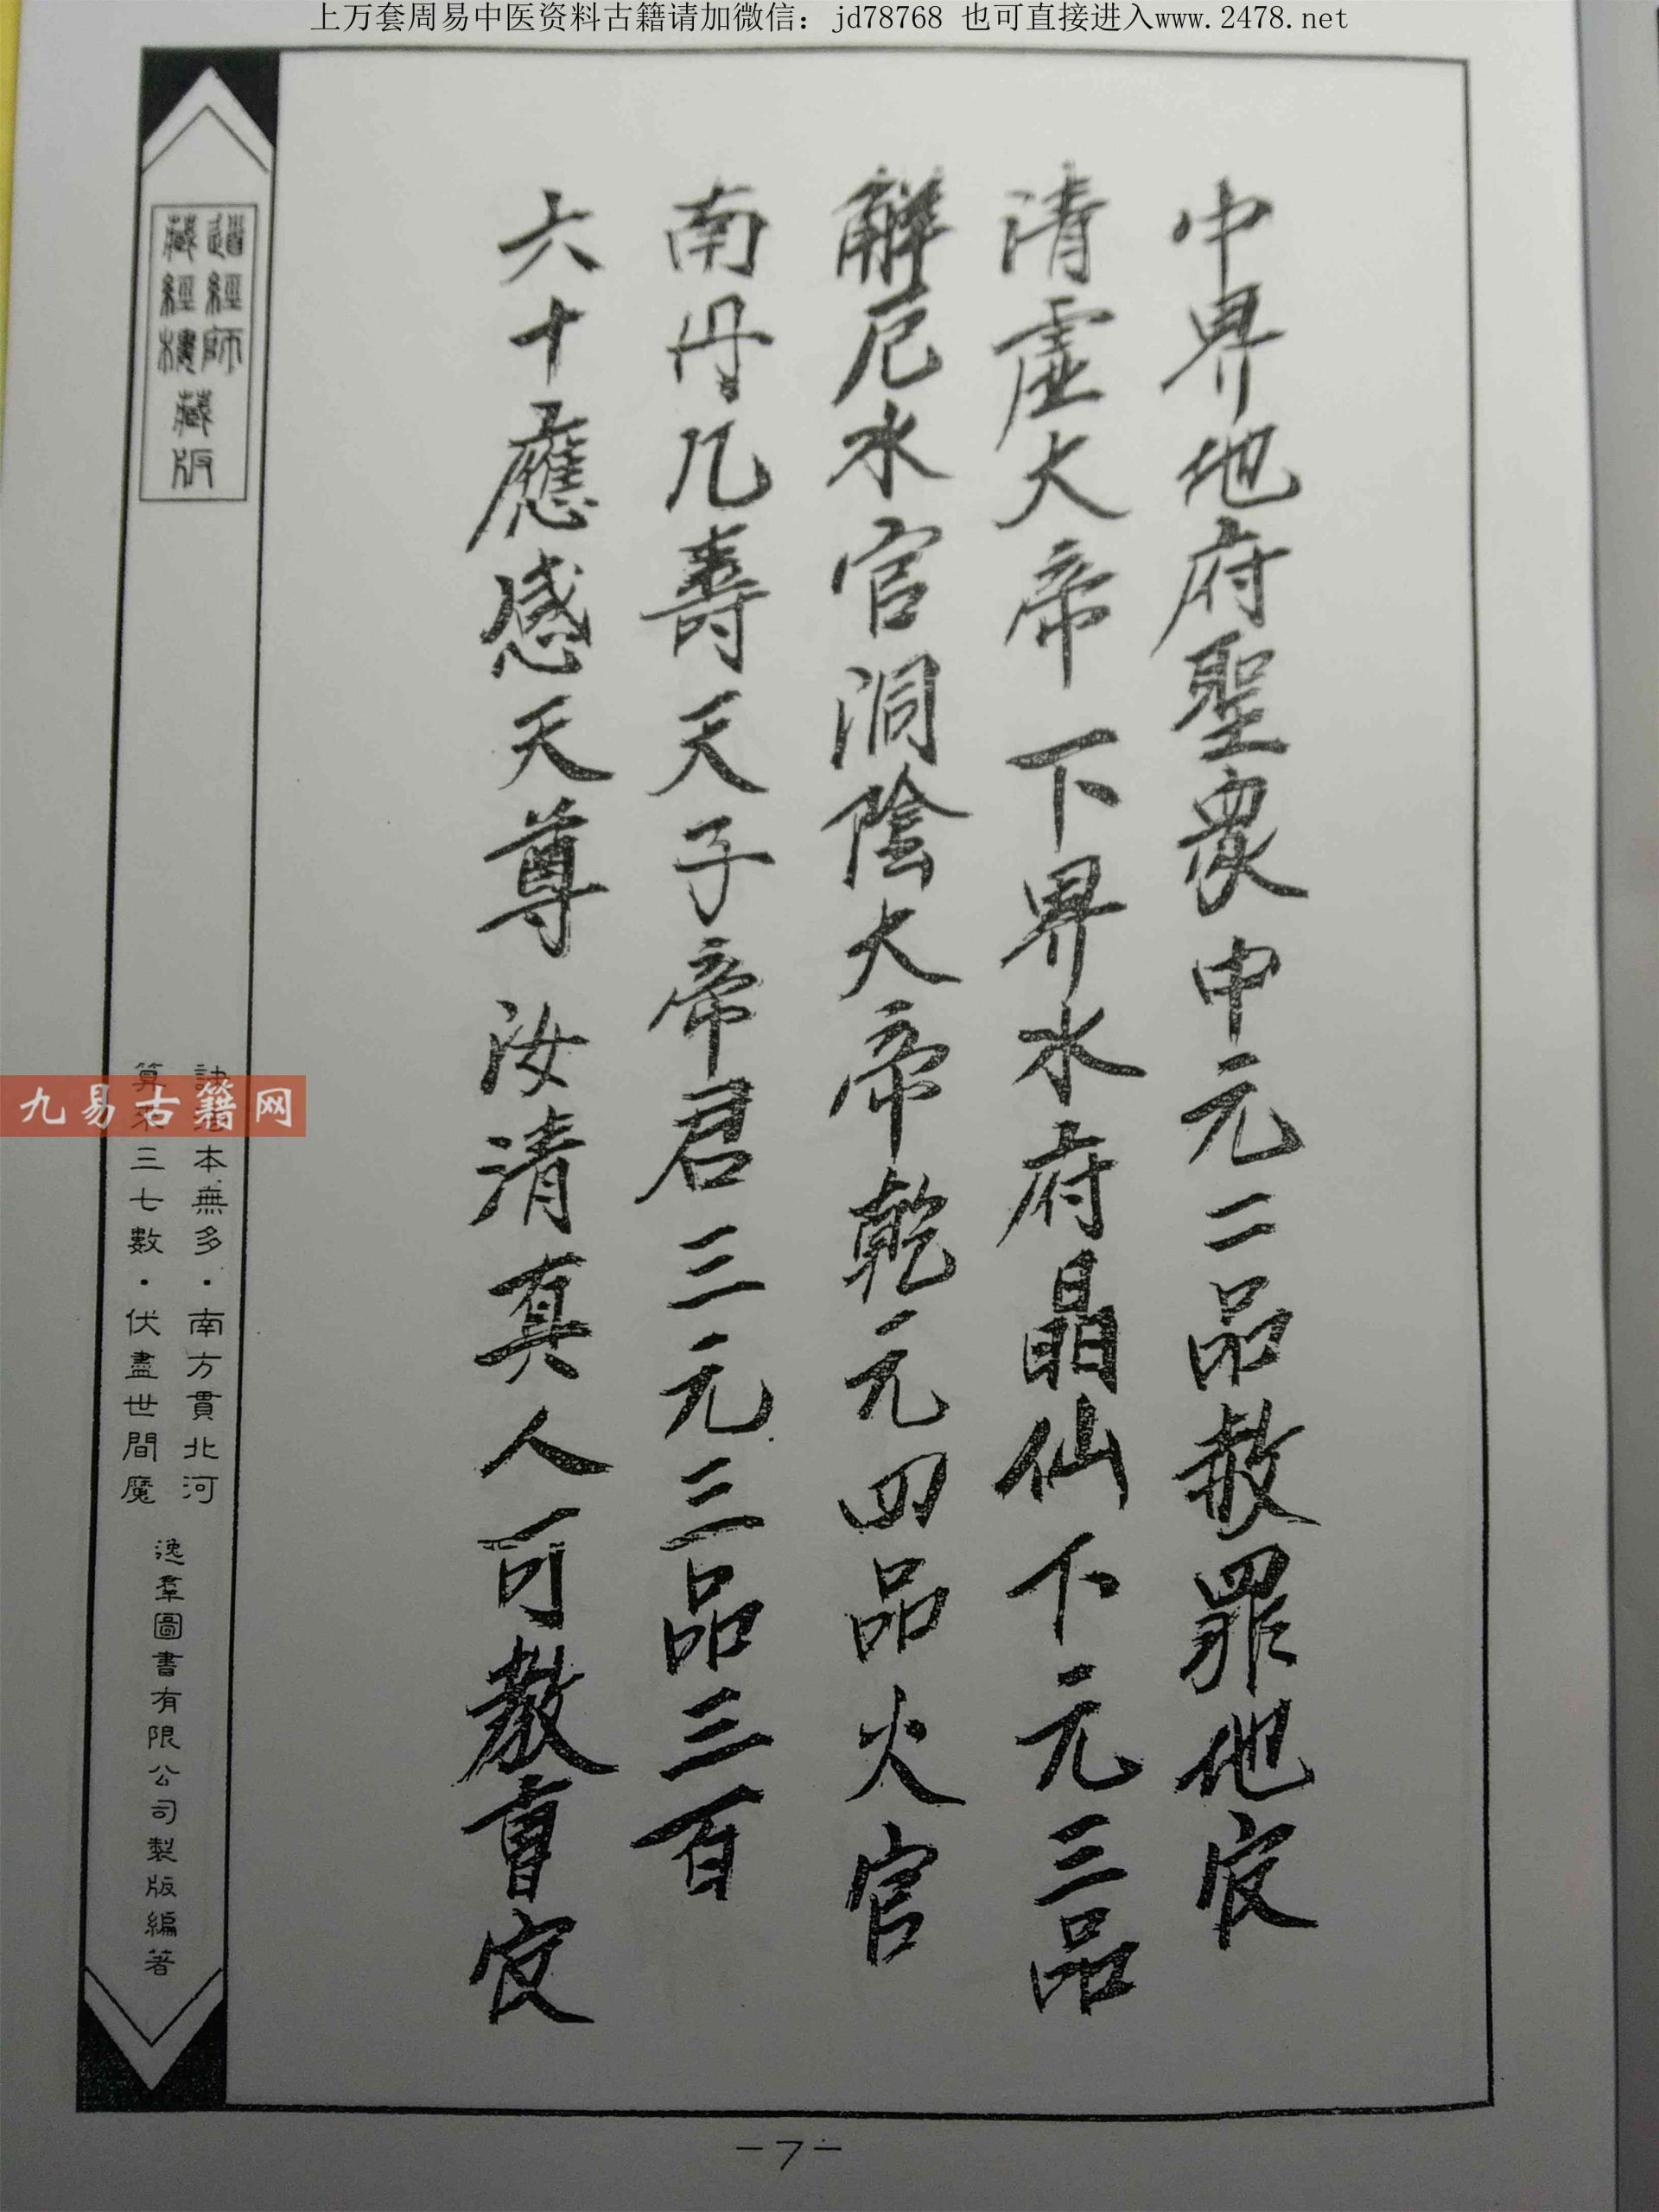 上万套周易中医资料古籍请加微信：jd78768 也可直接进入www.2478.net
中界地府聖衆中元二品赦罪地官
清虛大帝 下界水府晶仙下元三品
解厄水官洞陰大帝乾元四品火官
南丹凡壽天子帝君三元三品三百
六十應感天尊 汝清真人可教育官
道經師
藏經樓
藏版
本無多・南方貫北河
三七數・伏盡世間魔
逸羣圖書有限公司製版編著
九易古籍网
-7-